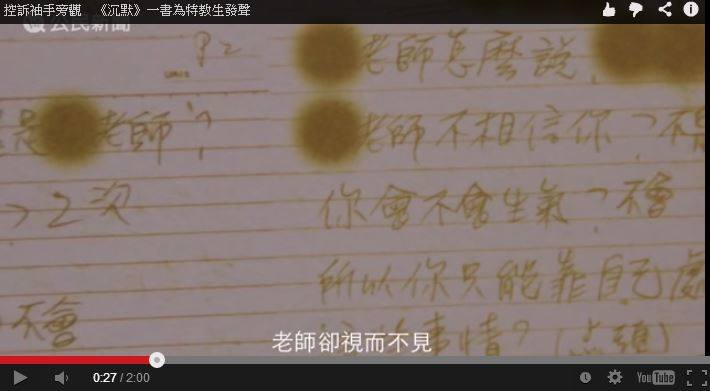 控訴袖手旁觀 《沉默》一書為特教生發聲
公民新聞
P2
老師怎麼說,
是 老師?
老師不相信你?不
→2次
你會不會生氣?不會
所以你只能靠自己處
不會
事情?(点頭)
老師卻視而不見
0:27 / 2:00
YouTube